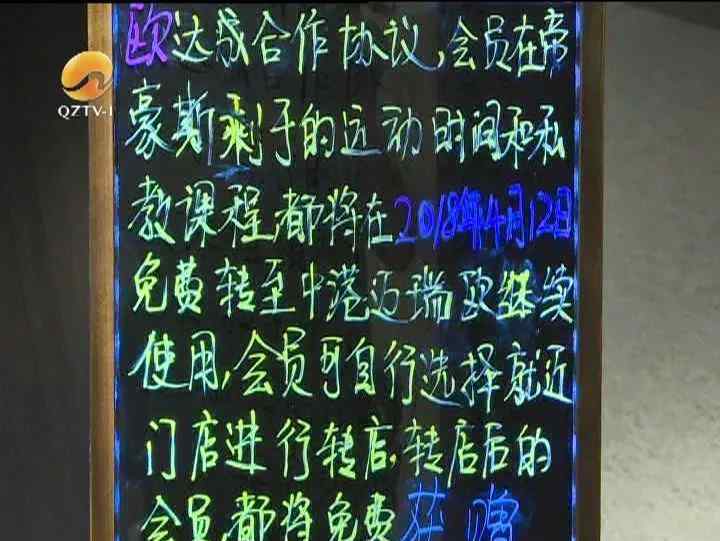 QZTV-1
欧达成合作协议,会员在帝
豪斯剩于的运动时间和私
教课程,都将在2018年4月12日
免费转至中港迈瑞欧继续
使用,会员可自行选择就近
门店进行转店.转店后的
会员,都将免费获赠